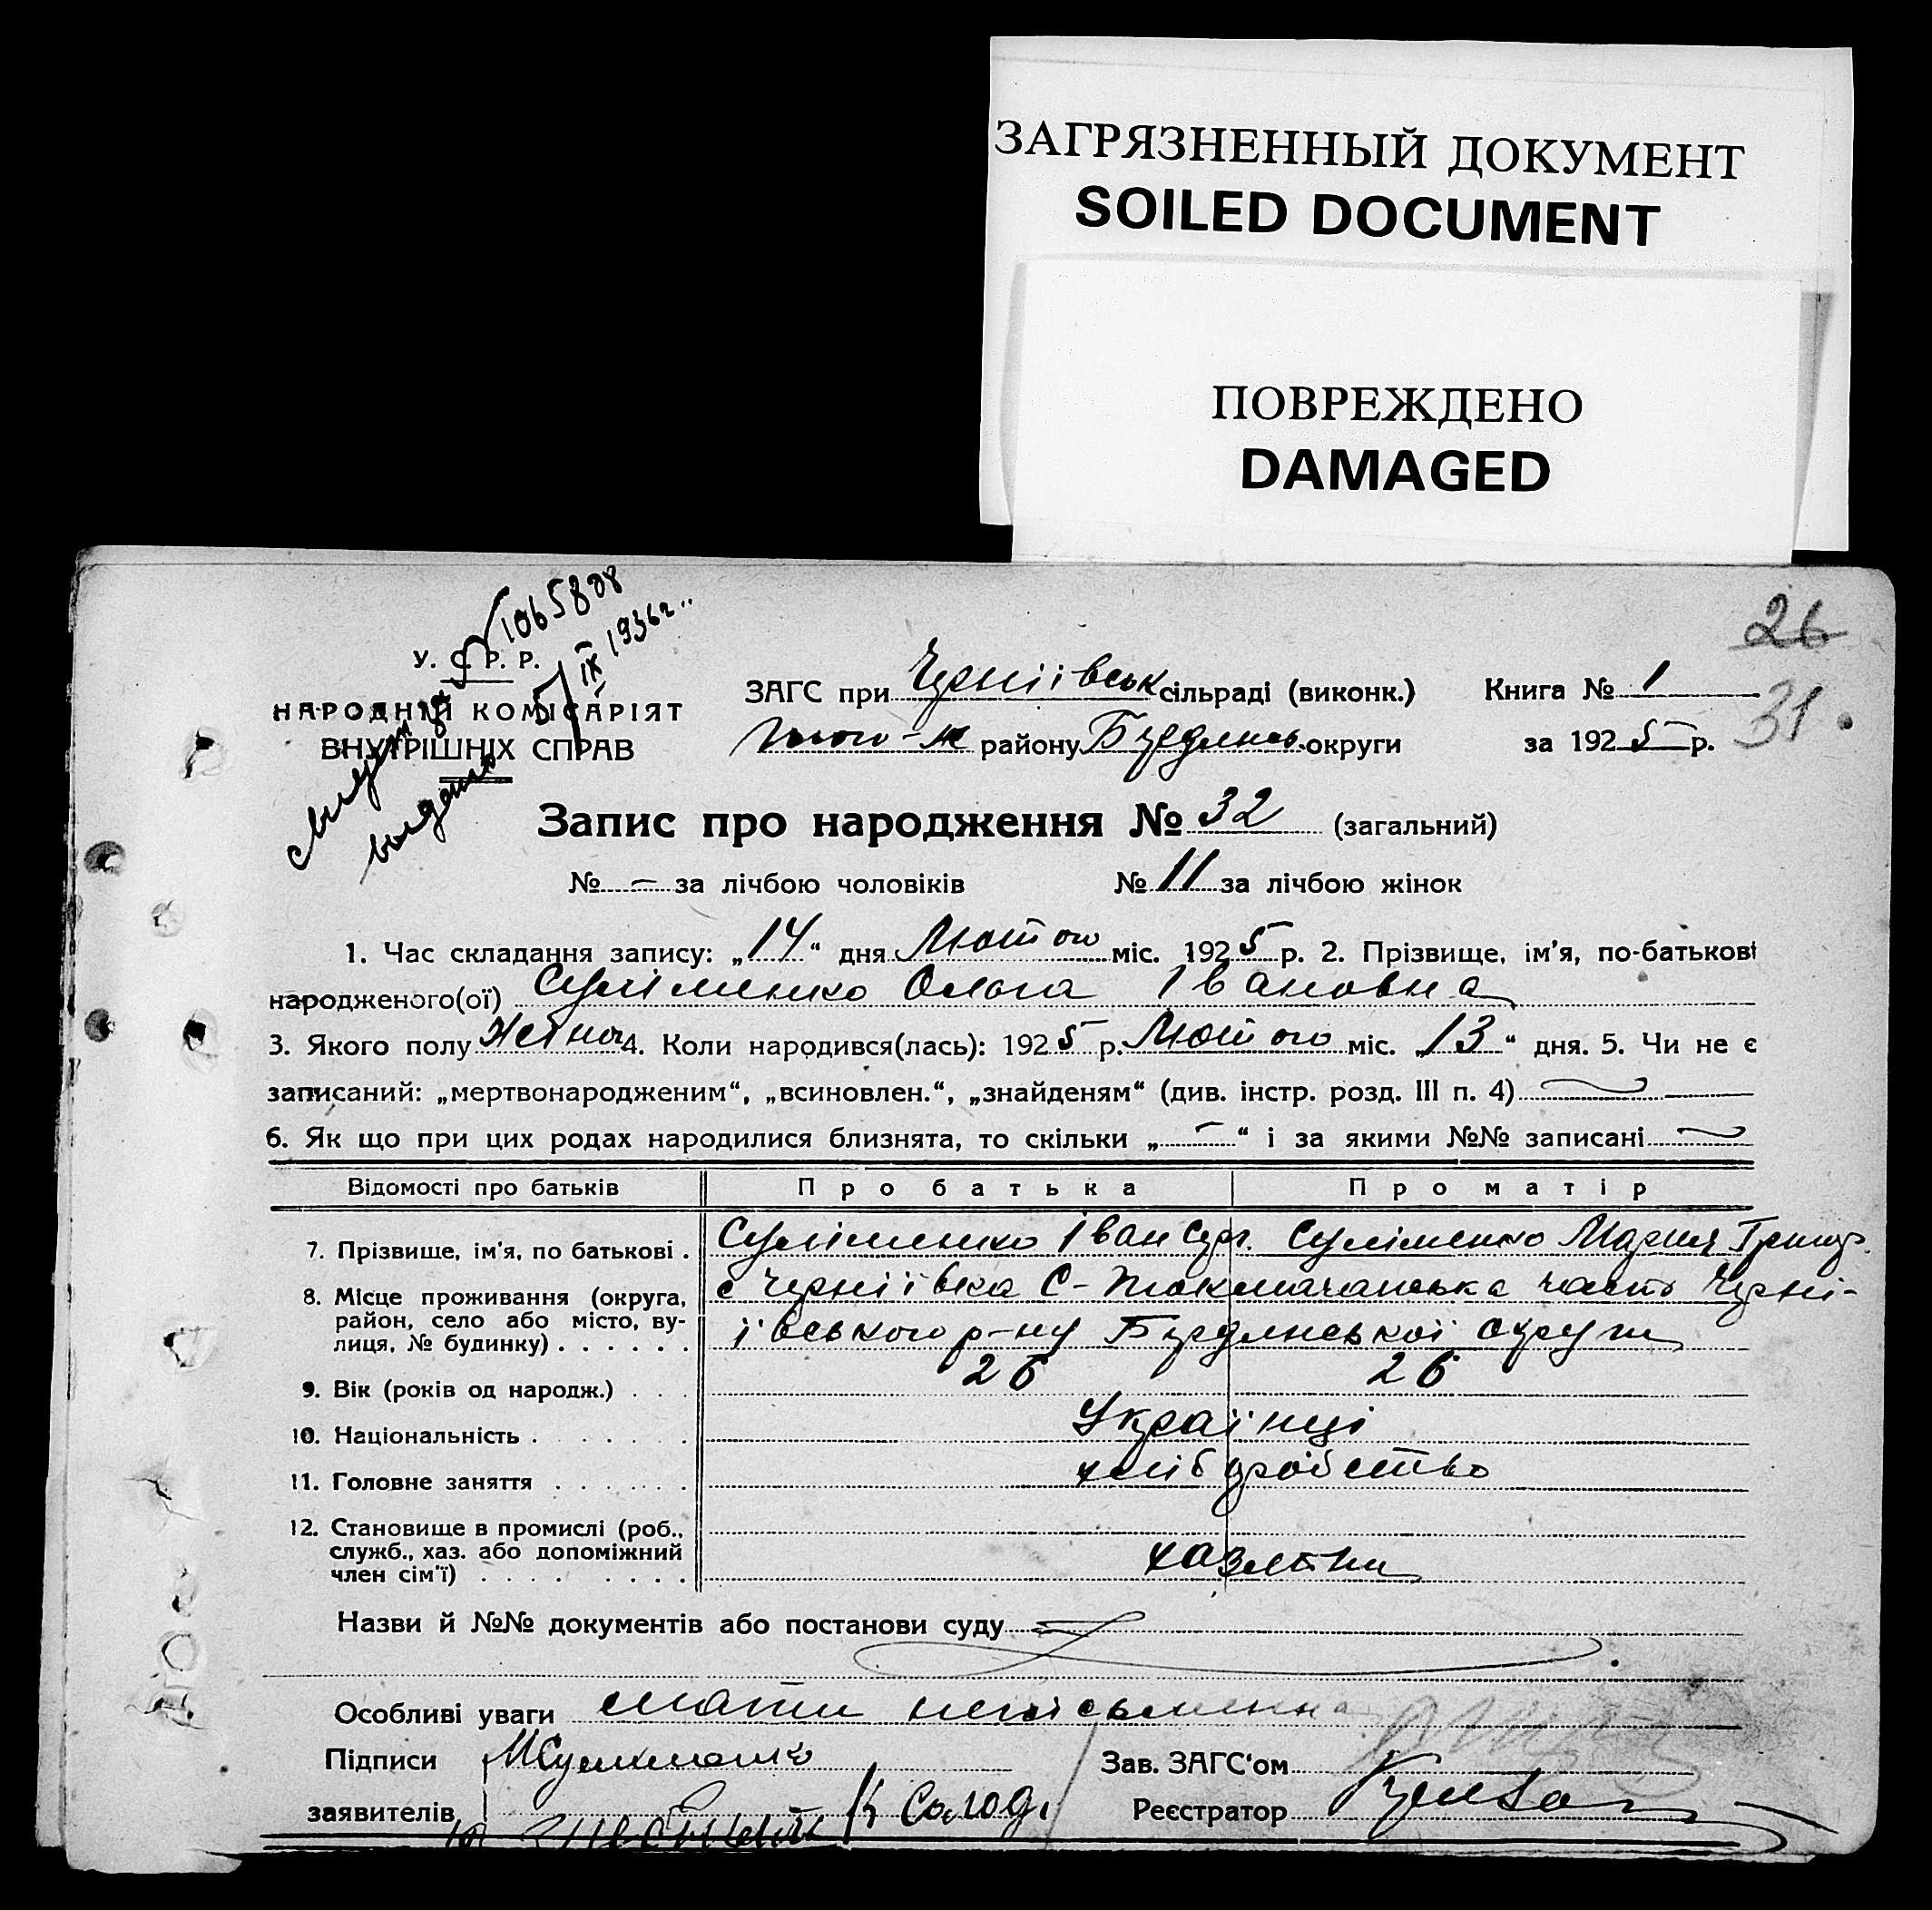 ЗАГРЯЗНЕННЫЙ ДОКУМЕНТ
SOILED DOCUMENT
ПОВРЕЖДЕНО
DAMAGED
1065808
5/IX 1936 г.
видано
26
31
У. С. Р. Р.
НАРОДНІЙ КОМІСАРІЯТ
ВНУТРІШНІХ СПРАВ
ЗАГС при Черніївськ сільраді (виконк.) Книга № 1
району Бердянськ. округи за 1925 р.
Запис про народження № 32 (загальний)
№ – за лічбою чоловіків № 11 за лічбою жінок
1. Час складання запису: „14“ дня Лютого міс. 1925 р. 2. Прізвище, ім'я, по-батькові
народженого(ої) Суліменко Ольга Івановна
3. Якого полу 4. Коли народився(лась): 1925 р. Лютого міс. „13“ дня. 5. Чи не є
записаний: „мертвонародженим“, „всиновлен.“, „знайденям“ (див. інстр. розд. III п. 4)
6. Як що при цих родах народилися близнята, то скільки „–“ і за якими №№ записані
Відомості про батьків Про батька Про матір
7. Прізвище, ім'я, по батькові . Суліменко Іван Серг. Суліменко Мария Григор.
8. Місце проживання (округа, с Черніівка С-Токмачанська часть Черні-
район, село або місто, ву- ївського р-ну Бердянської округи
лиця, № будинку) . . . . . .
9. Вік (років од народж.) . . . 26 26
10. Національність . . . . . Українці
11. Головне заняття . . . . . . хліборобство
12. Становище в промислі (роб.,
служб., хаз. або допоміжний хазяїни
член сім'ї) . . . . . . . . .
Назви й №№ документів або постанови суду
Особливі уваги мати неписьменна
Підписи Зав. ЗАГС'ом
заявителів Солод. Реєстратор